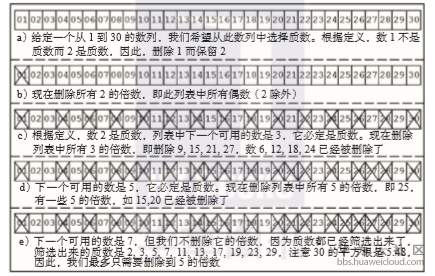 01 02 03 04 05 06 07 08 09 10 11 12 13 14 15 16 17 18 19 20 21 22 23 24 25 26 27 28 29 30
a）给定一个从 1 到 30 的数列，我们希望从此数列中选择质数。根据定义，数 1 不是
质数而 2 是质数，因此，删除 1 而保留 2
02 03 04 05 06 07 08 09 10 11 12 13 14 15 16 17 18 19 20 21 22 23 24 25 26 27 28 29 30
b）现在删除所有 2 的倍数，即此列表中所有偶数（2 除外）
02 03 05 07 09 11 13 15 17 19 21 23 25 27 29
c）根据定义，数 2 是质数，列表中下一个可用的数是 3，它必定是质数。现在删除
列表中所有 3 的倍数，即删除 9, 15, 21, 27，数 6, 12, 18, 24 已经被删除了
02 03 05 07 11 13 17 19 23 25 29
d）下一个可用的数是 5，它必定是质数。现在删除列表中所有 5 的倍数，即 25，
有一些 5 的倍数，如 15,20 已经被删除了
02 03 05 07 11 13 17 19 23 29
e）下一个可用的数是 7，但我们不删除它的倍数，因为质数都已经筛选出来了，
筛选出来的质数是 2, 3, 5, 7, 11, 13, 17, 19, 23, 29，注意 30 的平方根是 5.48，
因此，我们最多只需要删除到 5 的倍数
bbs.huaweicloud.com